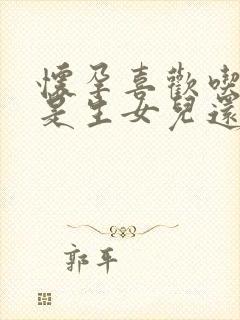 懷孕喜歡喫
是生女兒還
郭平